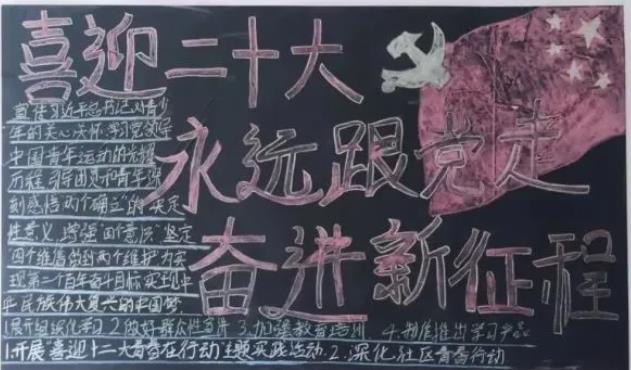 喜迎二十大
永远跟党走
奋进新征程
宣传习近平总书记对青少
年的关心关怀学习党领导
中国青年运动的光辉
历程 引导团员和青年深
刻感悟两个确立"的决定
性意义,增强"四个意识"坚定
四个维信做到两个维护为实
现第二个百年奋斗目标实现中
华民族伟大复兴的中国梦
1.展开的深化学习 2.做好群众性宣传 3.加强教育培训. 4.制作推出学习产品
1.开展"喜迎二十大青春在行动"主题实践活动. 2.深化社区青春行动